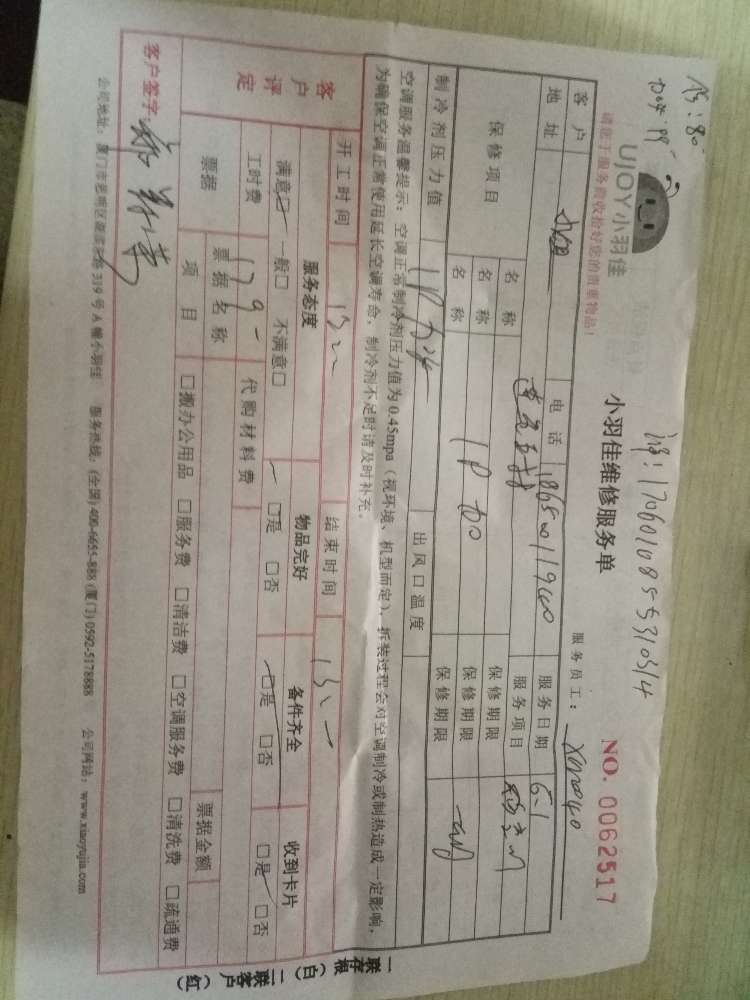 修: 80
加收: 99
单: 1706010855310314
UJOY小羽佳
请您于服务前收拾好您的贵重物品!
小羽佳维修服务单
NO. 0062517
服务员工: XM0040
客户
电话
18650011940
服务日期
6.1
地址
服务项目
保修项目
名称
保修期限
名称
1P 加
保修期限
名称
保修期限
制冷剂压力值
出风口温度
空调服务温馨提示: 空调正常制冷剂压力值为0.45mpa (视环境、机型而定), 拆装过程会对空调制冷或制热造成一定影响,
为确保空调正常使用延长空调寿命, 制冷剂不足时请及时补充。
开工时间
结束时间
客户评定
服务态度
物品完好
备件齐全
收到卡片
满意☑ 一般□ 不满意□
☑是 □否
☑是 □否
☑是 □否
工时费
179-
代购材料费
票据
票据名称
票据金额
项目
□搬办公用品 □服务费 □清洁费 □空调服务费 □清洗费 □疏通费
客户签字:
公司地址: 厦门市思明区 319号A幢小羽佳 服务热线: (全国) 400-6655-888 (厦门) 0592-5178888 公司网站: www.xiaoyujia.com
一联存根(白) 二联客户(红)